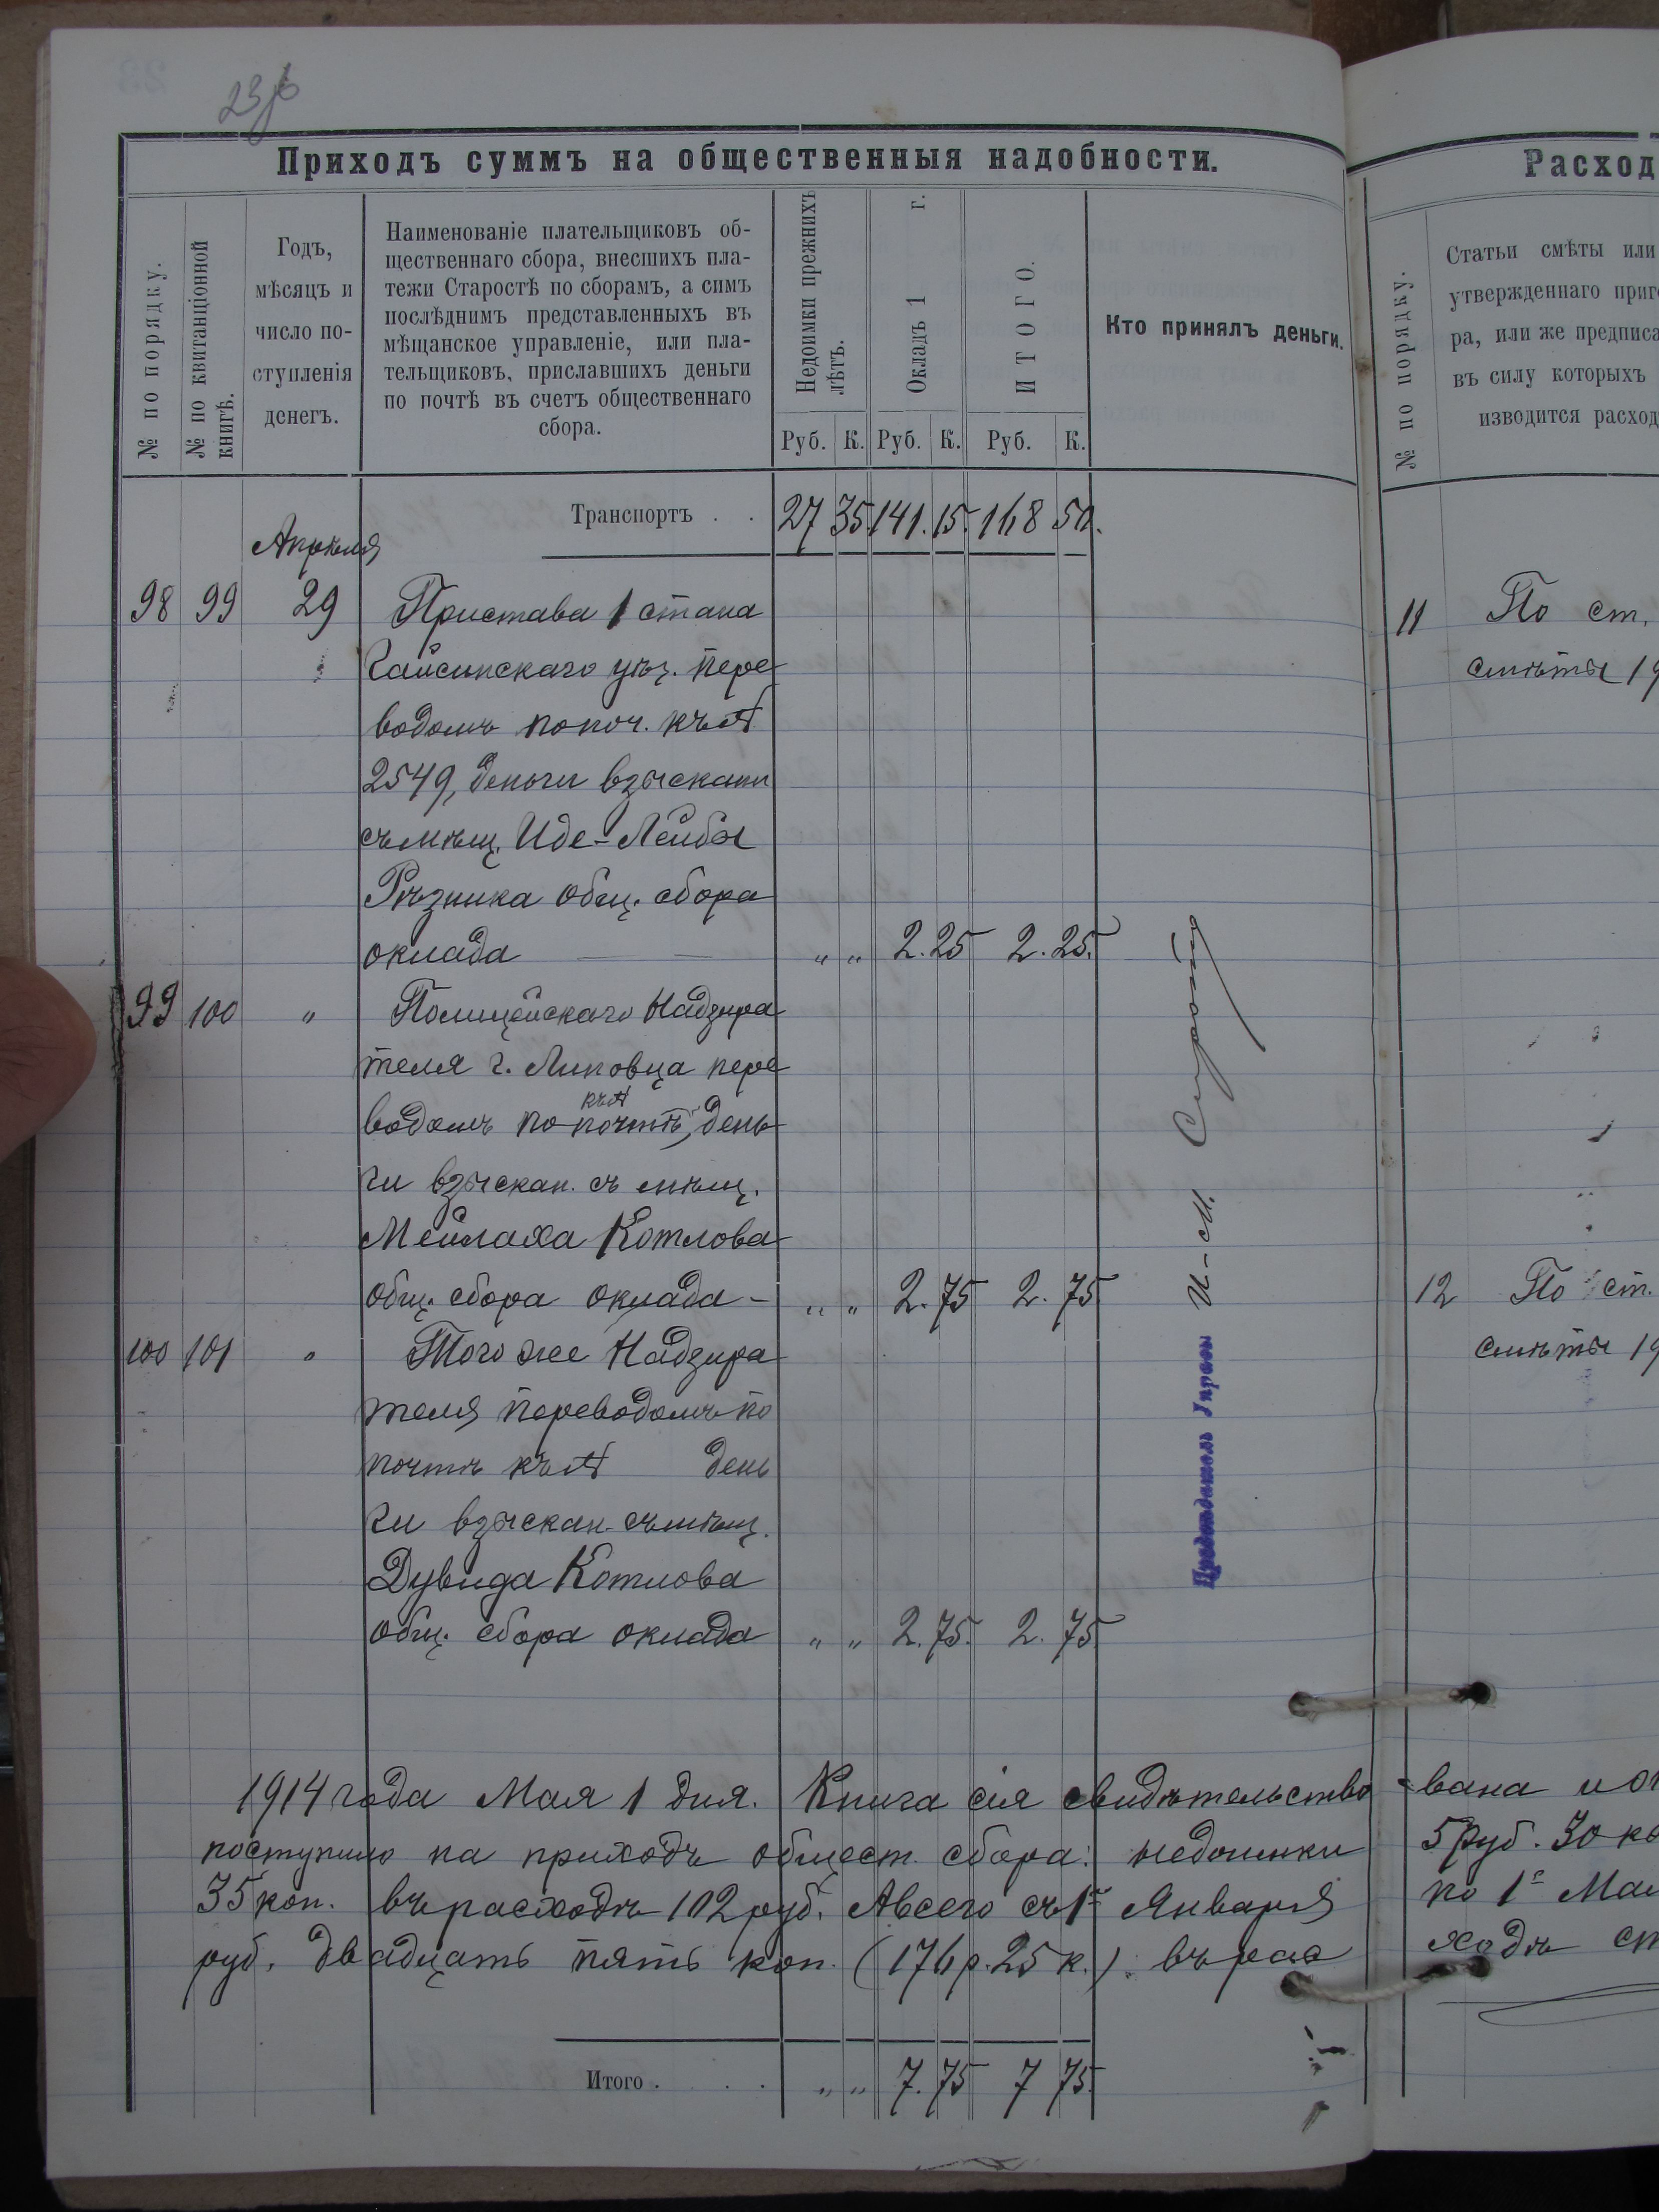 23об
Приходъ суммъ на общественныя надобности.
№ по порядку.
№ по квитанціонной
книгѣ.
Годъ,
мѣсяцъ и
число по-
ступленія
денегъ.
Наименованіе плательщиковъ об-
щественнаго сбора, внесшихъ пла-
тежи Старостѣ по сборамъ, а симъ
послѣднимъ представленныхъ въ
мѣщанское управленіе, или пла-
тельщиковъ, приславшихъ деньги
по почтѣ въ счетъ общественнаго
сбора.
Недоимки прежнихъ
лѣтъ.
Окладъ 1 г.
ИТОГО.
Руб. К. Руб. К. Руб. К.
Кто принялъ деньги.
Транспортъ . . 27 35. 141. 15. 168 50.
Апрѣля
98 99 29 Пристава 1 стана
Гайсинскаго уѣз. пере
водомъ по поч. къ №
2549, деньги взыскан
съ мѣщ. Иде-Лейбы
Рѣзника общ. сбора
оклада „ „ 2. 25 2. 25.
99 100 „ Полицейскаго Надзира
теля г. Липовца пере
къ №
водомъ по почтѣ, день
ги взыскан. съ мѣщ.
Мейлаха Котлова
общ. сбора оклада - „ „ 2. 75 2. 75
100 101 „ Того же Надзира
теля переводомъ по
почтѣ къ № день
ги взыскан. съ мѣщ.
Дувида Котлова
общ. сбора оклада „ „ 2. 75. 2. 75
Предсѣдатель Управы И-М.
1914 года Мая 1 дня. Книга сія свидѣтельство
поступило на приходъ общест. сбора: недоимки
35 коп. въ расходѣ 102 руб. А всего съ 1го Января
руб. двадцать пять коп. (176 р. 25 к.) въ рас
Итого . . . . „ „ 7. 75 7 75.
Расход
№ по порядку.
Статьи смѣты или
утвержденнаго приго
ра, или же предписа
въ силу которыхъ
изводится расход
11 По ст.
смѣты 19
12 По ст.
смѣты 19
-вана и ок
5 руб. 30 ко
по 1е Мая
ходѣ ст